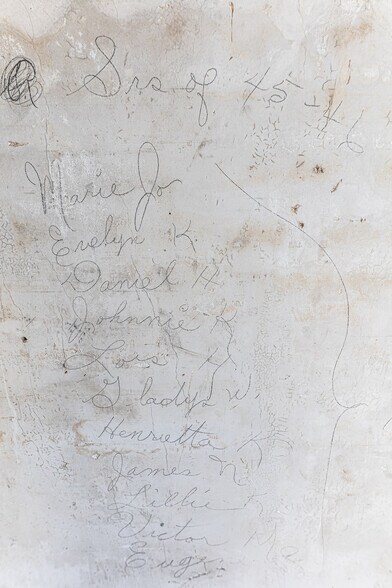 Srs of 45-46
Marie Jo
Evelyn K.
Daniel H
Johnnie K
Lois H
Gladys W.
Henrietta
James
Lillie
Victor
Euge